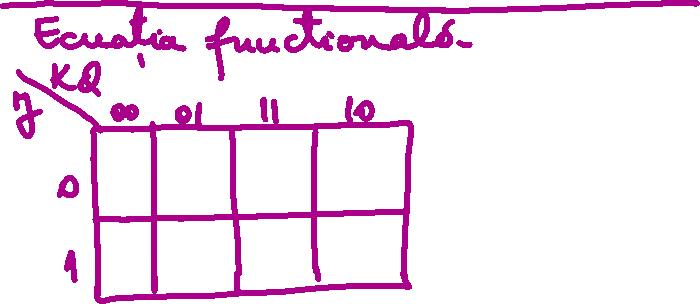 Ecuația funcțională
KQ
J 00 01 11 10
0
1